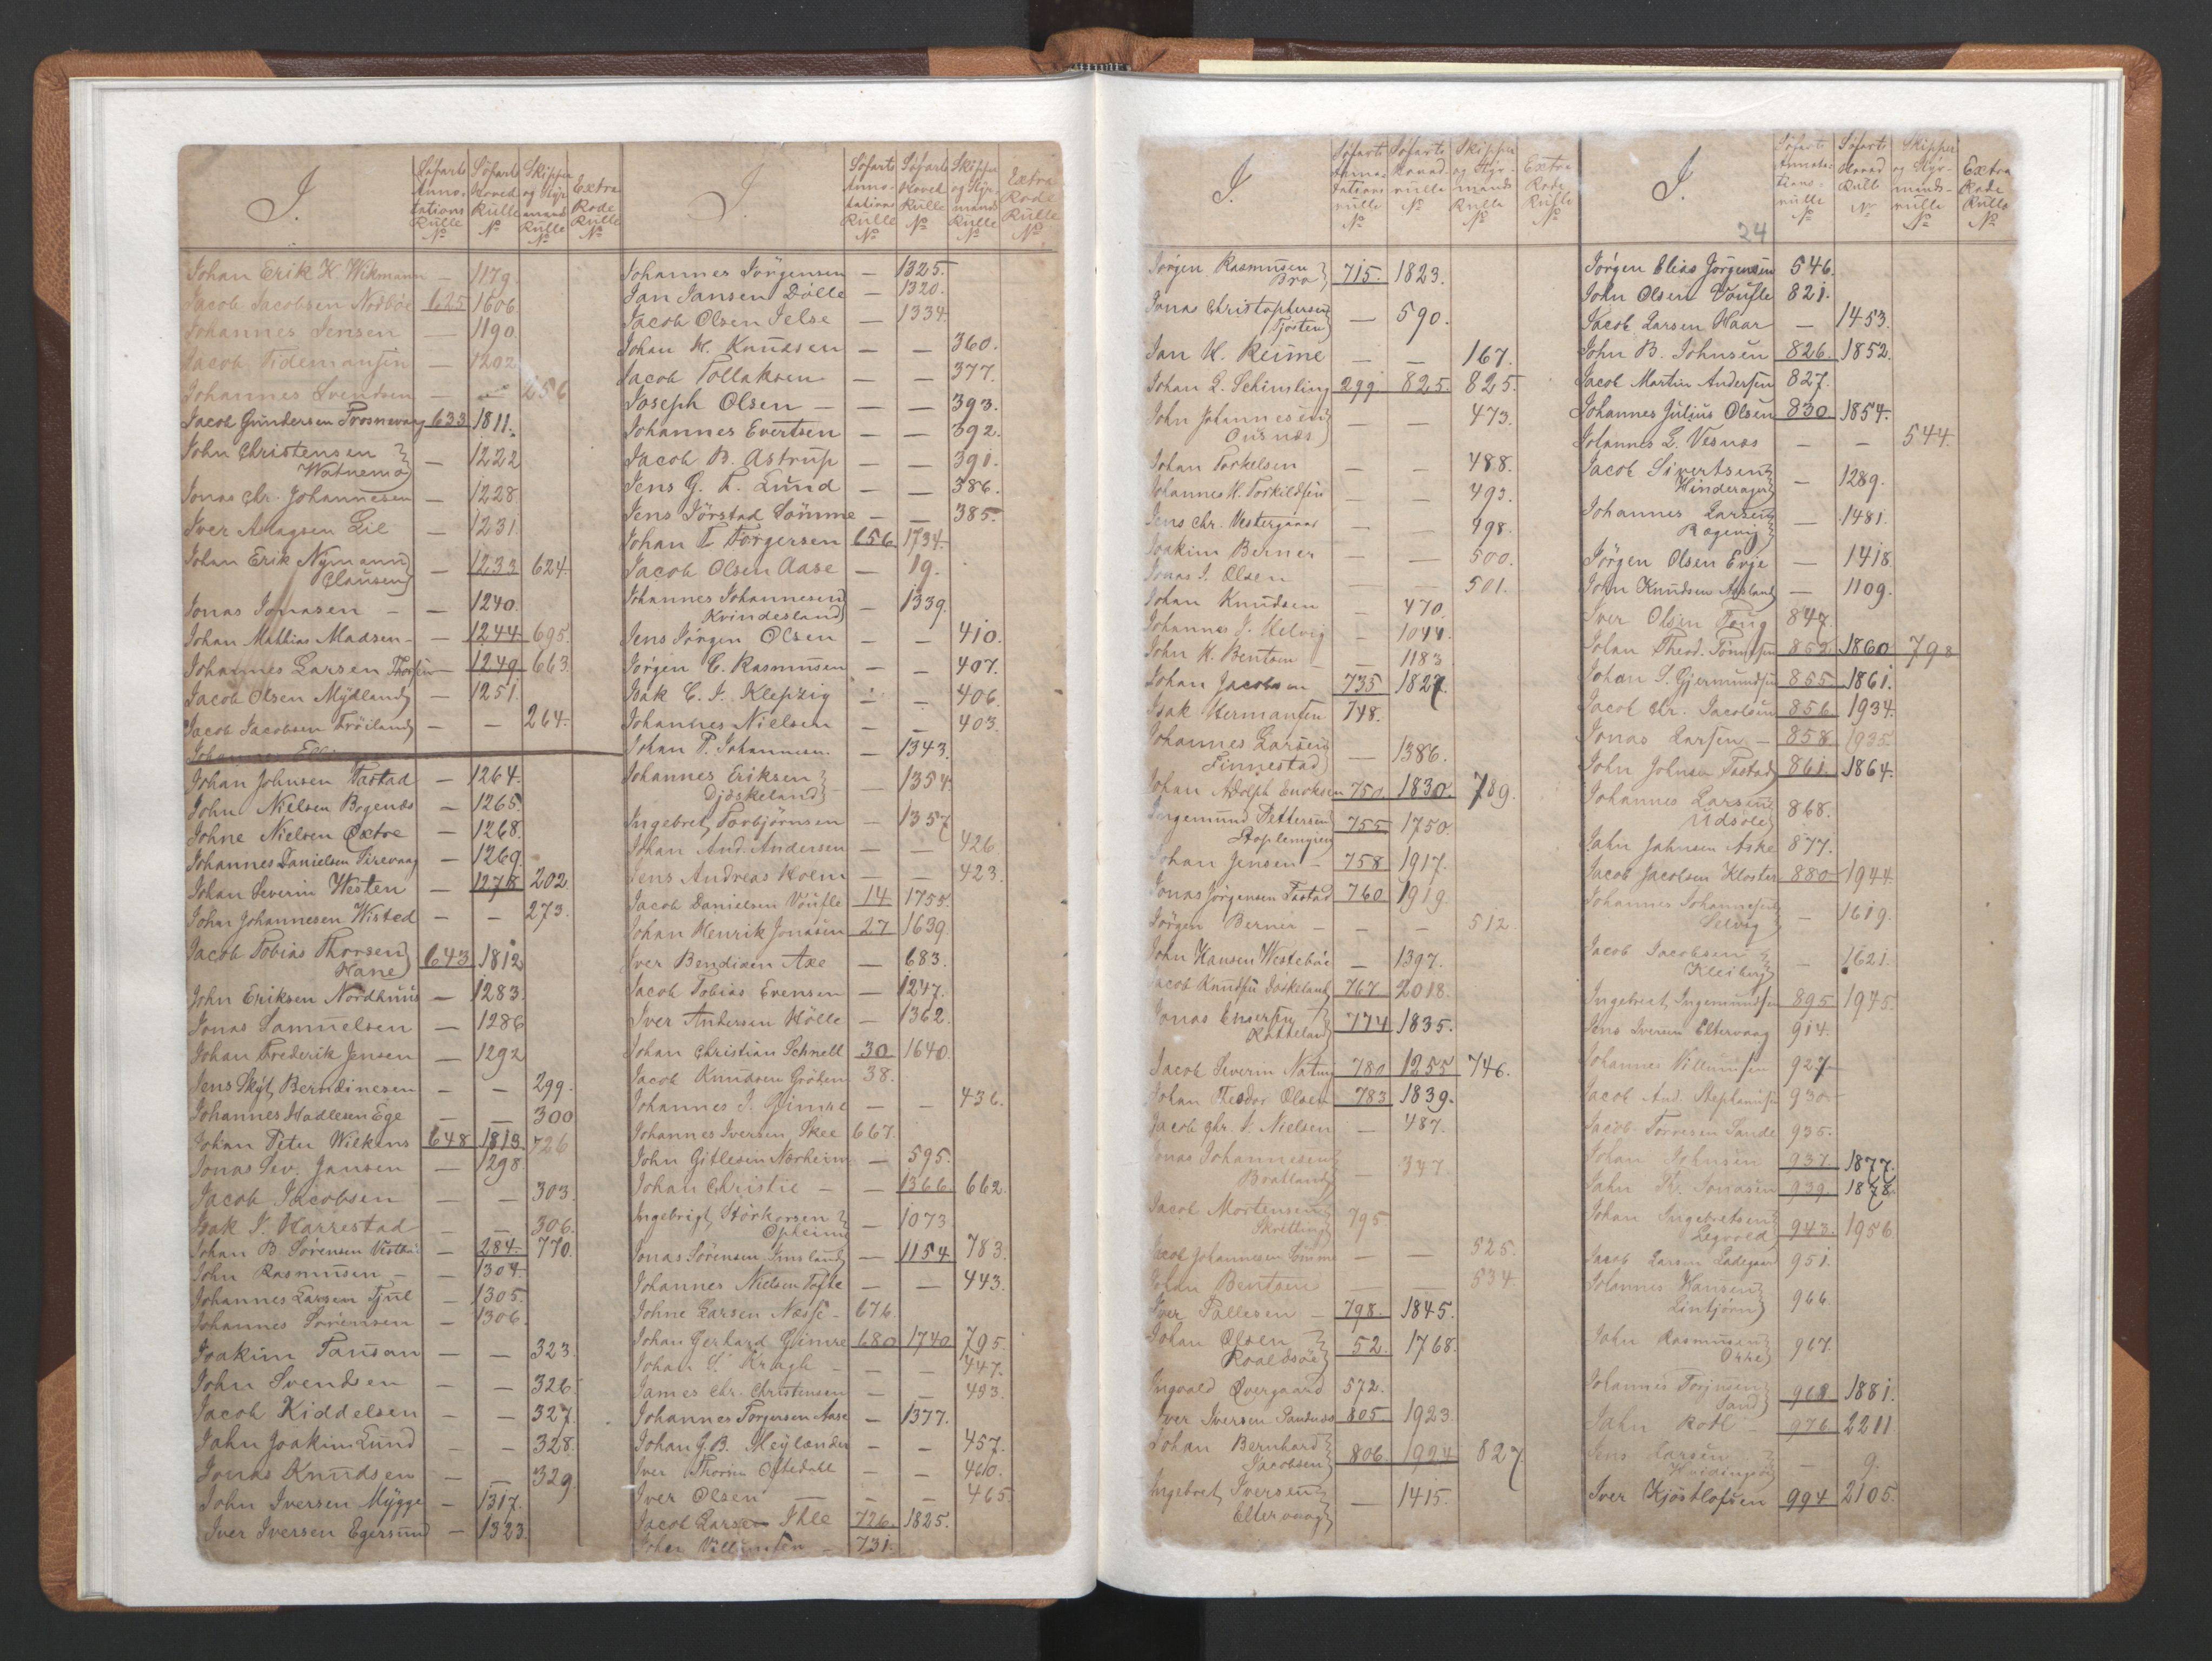 I.
Søfarts Annotations Rulle No
Søfarts Hoved Rulle No
Skipper og Styrmands Rulle No
Extra Rode Rulle No
Johan Erik K. Wikmann — 1179.
Jacob Jacobsen Nordböe 625 1606.
Johannes Jensen — 1190.
Jacob Tidemansen — 1202
Johannes Svendsen — — 256
Jacob Gundersen Frosnevaag 633 1811.
John Christensen
Watnemo — 1222
Jonas Chr. Johannesen — 1228
Iver Aslagsen Lie — 1231.
Johan Erik Nymann
Clausen — 1233 624.
Jonas Jonasen — — 1240.
Johan Mathias Madsen — — 1244 695.
Johannes Larsen — 1249. 663.
Jacob Olsen Mydland — 1251.
Jacob Jacobsen Fröiland — — 264.
Johan Johnsen Tastad — 1264.
John Nielsen Bogenæs — 1265.
Johne Nielsen Oxtre — 1268.
Johannes Danielsen Sirevaag — 1269.
Johan Severin Westen — 1278 202.
John Johannesen Wisted — — 273.
Jacob Tobias Thorsen
Hane 643 1812
John Eriksen Nordhuus — 1283.
Jonas Samuelsen — 1286
Johan Frederik Jensen — 1292
Jens Skyt Berndinesen — — 299.
Johannes Hadlesen Ege — — 300
Johan Peter Wilkens 648 1813 726
Jonas Sev. Jansen — 1298.
Jacob Jacobsen — — 303.
Isak I. Harrestad — — 306.
Johan B. Sörensen — 284. 770.
John Rasmussen — — 1304.
Johannes Larsen Tjul — 1305.
Johannes Sörensen — 1306.
Joakim Tansan — — 323.
John Svendsen — — 326.
Jacob Kiddelsen — — 327.
Jahn Joakim Lund — — 328.
Jonas Knudsen — — 329.
John Iversen Mygge — 1317.
Iver Iversen Egersund — 1323.
I.
Søfarts Annotations Rulle No
Søfarts Hoved Rulle No
Skipper og Styrmands Rulle No
Extra Rode Rulle No
Johannes Jörgensen — 1325.
Jan Jansen Dölle — 1320.
Jacob Olsen Jelse — 1334.
Johan H. Knudsen — — 360.
Jacob Tollaksen — — 377.
Joseph Olsen — — — 393.
Johannes Evertsen — — 392.
Jacob B. Astrup — — 391.
Jens G. F. Lund — — 386.
Jens Jörstad Sömme — — 385.
Johan T. Torgersen 656 1734.
Jacob Olsen Aase — 19.
Johannes Johannesen
Kvindesland — 1339.
Jens Jörgen Olsen — — 410.
Jörgen C. Rasmussen — — 407.
Isak C. J. Klepzig — — 406.
Johannes Nielsen — — 403.
Johan P. Johannesen. — 1343.
Johannes Eriksen
Djöskeland — 1354
Ingebret Torbjørnsen — 1357
Johan And. Andersen — — 426
Jens Andreas Holm — — 423.
Jacob Danielsen Voufle 14 1755.
Johan Henrik Jonasen 27 1639.
Iver Bendixen Axe — 683.
Jacob Tobias Evensen — 1247.
Iver Andersen Hölle — 1362.
Johan Christian Schnell 30 1640.
Jacob Knudsen Gröten 38.
Johannes J. Gimre — — 436.
Johannes Iversen Skee 667.
John Gitlesen Nærheim — 595.
Johan Christie — — 1366. 662.
Ingebrigt Störkorsen
Opheim — 1073.
Jonas Sörensen Imsland — 1154 783.
Johannes Nielsen Tofte — — 443.
Johne Larsen Næsse 676.
Johan Gerhard Gimre 680 1740 795.
Johan S. Kragh — — — 447.
James Chr. Christensen — — 493.
Johannes Torgersen Aase — 1377.
Johan G. B. Meylænder — — 457.
Iver Thorsen Oftedahl — — 460.
Iver Olsen — — — 465.
Jacob Larsen Ihle 726. 1825.
Johan Villumsen — 731.
I.
Søfarts Annotations rulle No
Søfarts Hoved rulle No
Skipper og Styrmands Rulle No
Extra Rode Rulle No
Jörgen Rasmussen
Bro 715. 1823.
Jonas Christophersen
Tjosten — 590.
Jan H. Reime — — 167.
Johan L. Schimling 299. 825. 825.
John Johannesen
Ousnæs — — 473.
Johan Torkelsen — — 488.
Johannes H. Torkildsen — — 493.
Jens Chr. Vestergaard — — 498.
Joakim Berner — — 500.
Jonas J. Olsen — — 501.
Johan Knudsen — 470.
Johannes J. Helvig — 1044.
John K. Bentsen — — 1183
Johan Jacobsen 735 1827.
Isak Hermansen 748.
Johannes Larsen
Finnestad — 1386.
Johan Adolph Enoksen 750. 1830. 789.
Ingemund Pettersen
755 1750.
Johan Jensen — 758 1917.
Jonas Jörgensen Tastad 760 1919
Jörgen Berner — — — 512.
John Hansen Westeböe — 1397.
Jacob Knudsen Döskeland 767 2018.
Jonas
774 1835.
Jacob Severin Natvig 780 1255 746.
Johan Theodor Olsen 783 1839.
Jacob Chr. S. Nielsen — 487.
Jonas Johannesen
Bratland — 347.
Jacob Mortensen
Skretting 795.
Jacob Johannesen Sömme — — 525.
Johan Bentsen — — 534.
Iver Pallesen — 798. 1845.
Johan Olsen
Roaldsöe 52. 1768.
Ingvald Övergaard 572.
Iver Iversen Sandnæs 805. 1923.
Johan Bernhard
Jacobsen 806. 1924 827
Ingebret Iversen
Eltervaag — 1415.
I.
24
Søfarts Annotations rulle No
Søfarts Hoved Rulle No
Skipper og Styrmands rulle No
Extra Rode Rulle No
Jörgen Elias Jörgensen 546.
John Olsen Voufle 821.
Jacob Larsen Haar — 1453.
John B. Johnsen 826. 1852.
Jacob Martin Andersen 827.
Johannes Julius Olsen 830 1854.
Johannes L. Vesnæs — — 544.
Jacob Sivertsen
Hinderager — 1289.
Johannes Larsen
Rægevig — 1481.
Jörgen Olsen Erje — 1418.
John Knudsen Aasland — 1109.
Iver Olsen Toug 847.
Johan Theod. Tönnesen 852 1860 798
Johan S. Gjermundsen 855. 1861.
Jacob Chr. Jacobsen 856 1934.
Jonas Larsen — 858. 1935.
John Johnsen Tastad 861. 1864.
Johannes Larsen
Udsole 868.
Jahn Jahnsen Aske 877.
Jacob Jacobsen Kloster 880 1944
Johannes Johannesen
Selvig — 1619.
Jacob Jacobsen
Kleiberg — 1621.
Ingebret Ingemundsen 895 1945.
Jens Iversen Eltervaag 914.
Johannes Villumsen 927
Jacob And. Stephansen 930
Jacob Torresen Sande 935.
Johan Johnsen 937. 1877.
Jahn Th. Jonasen 939. 1878.
Johan Ingebretsen
Legvold 943. 1956
Jacob Larsen Ladegaard 951.
Johannes Hansen
Lintjörn 966.
Jahn Rasmussen
967.
Johannes Torjusen
Sand 968. 1881.
Jahn Roth — 976. 2211
Jens Larsen
Hvidingsöe — 9.
Iver Kjöstlofsen 994 2105.